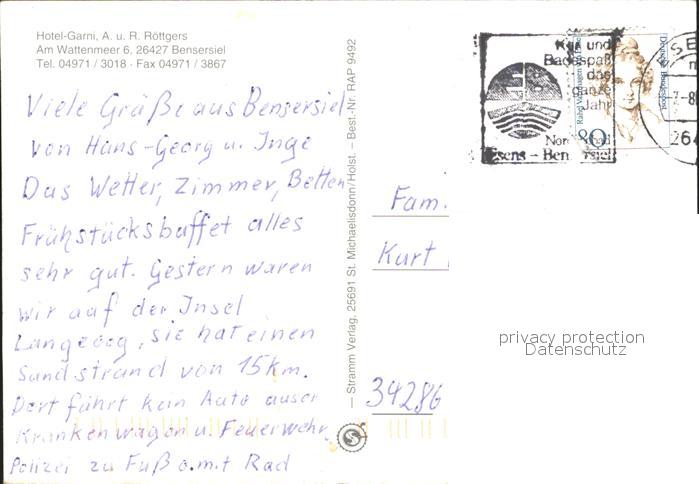 Hotel-Garni, A. u. R. Röttgers
Am Wattenmeer 6, 26427 Bensersiel
Tel. 04971 / 3018 - Fax 04971 / 3867
Viele Grüße aus Bensersiel
von Hans-Georg u. Inge
Das Wetter, Zimmer, Betten
Frühstücksbuffet alles
sehr gut. Gestern waren
wir auf der Insel
Langeoog, sie hat einen
Sandstrand von 15km.
Dort fährt kein Auto auser
Krankenwagen u. Feuerwehr
Polizei zu Fuß o. mit Rad
— Stramm Verlag, 25691 St. Michaelisdonn/Holst. – Best.-Nr. RAP 9492
Kur und
Badespaß
das
ganze
Jahr
Esens – Bensersiel
Rahel Varnhagen von Ense
Deutsche Bundespost
80
ESE
Fam.
Kurt
34286
privacy protection
Datenschutz